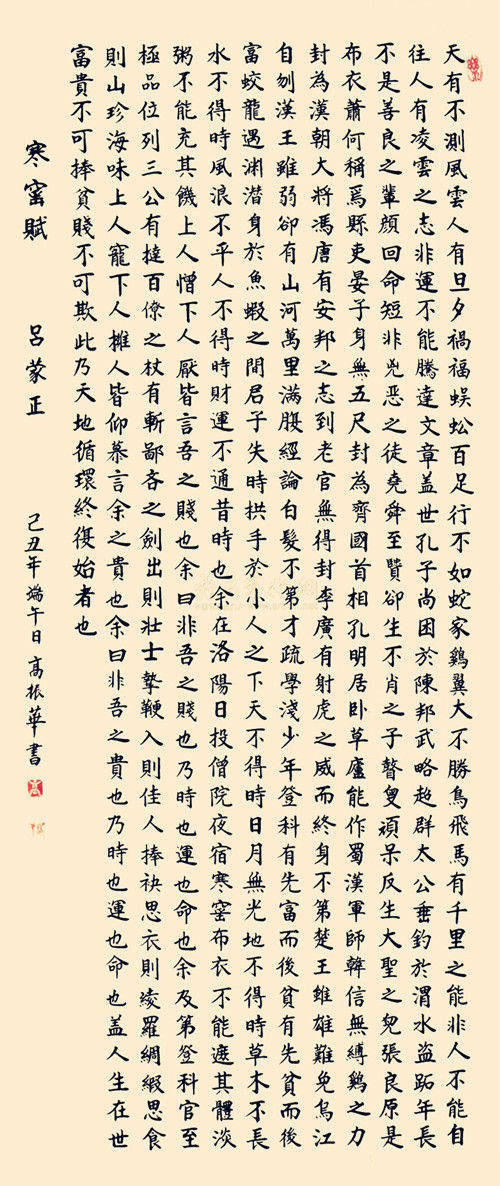 天有不測風雲人有旦夕禍福蜈蚣百足行不如蛇家鷄翼大不勝鳥飛馬有千里之能非人不能自
往人有凌雲之志非運不能騰達文章盖世孔子尚困於陳邦武略超群太公垂釣於渭水盜跖年長
不是善良之輩顏回命短非兇惡之徒堯舜至賢卻生不肖之子瞽叟頑呆反生大聖之兒張良原是
布衣蕭何稱焉縣吏晏子身無五尺封為齊國首相孔明居卧草廬能作蜀漢軍師韓信無縛鷄之力
封為漢朝大將馮唐有安邦之志到老官無得封李廣有射虎之威而終身不第楚王雖雄難免烏江
自刎漢王雖弱卻有山河萬里滿腹經論白髮不第才疏學淺少年登科有先富而後貧有先貧而後
富蛟龍遇渊潜身於魚蝦之間君子失時拱手於小人之下天不得時日月無光地不得時草木不長
水不得時風浪不平人不得時財運不通昔時也余在洛陽日投僧院夜宿寒窑布衣不能遮其體淡
粥不能充其饑上人憎下人厭皆言吾之賤也余曰非吾之賤也乃時也運也命也余及第登科官至
極品位列三公有撻百僚之杖有斬鄙吝之劍出則壯士摯鞭入則佳人捧袂思衣則綾羅綢緞思食
則山珍海味上人寵下人擁人皆仰慕言余之貴也余曰非吾之貴也乃時也運也命也盖人生在世
富貴不可捧貧賤不可欺此乃天地循環終復始者也
寒窑賦 呂蒙正 己丑年端午日高振華書